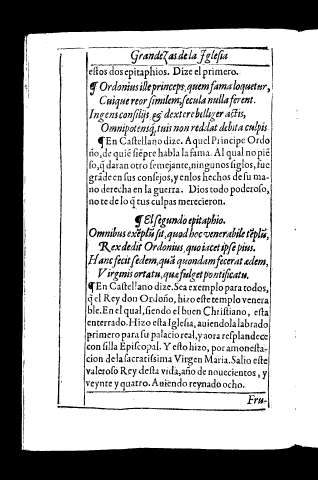 Grandezas de la Iglesia
estos dos epitaphios. Dize el primero.
¶ Ordonius ille princeps, quem fama loquetur,
Cuique reor similem, secula nulla ferent.
Ingens consilijs, eg dextere belliger actis,
Omnipotensq; tuis non reddat debita culpis
¶ En Castellano dize. Aquel Principe Ordo
ño, de quiē siēpre habla la fama. Al qual no piē
so, q̃ daran otro semejante, ningunos siglos, fue
grāde en sus consejos, y en los hechos de su ma
no derecha en la guerra. Dios todo poderoso,
no te de lo q̃ tus culpas merecieron.
¶ El segundo epitaphio.
Omnibus exēplū sit, quod hoc venerabile tēplū,
Rex dedit Ordonius, quo iacet ipse pius.
Hanc fecit sedem, quā quondam fecerat ædem,
Virginis ortatu, quæ fulget pontificatu.
¶ En Castellano dize. Sea exemplo para todos,
q̃ el Rey don Ordoño, hizo este templo venera
ble. En el qual, siendo el buen Christiano, esta
enterrado. Hizo esta Iglesia, auiendola labrado
primero para su palacio real, y aora resplandece
con silla Episcopal. Y esto hizo, por amonesta-
cion de la sacratissima Virgen Maria. Salio este
valeroso Rey desta vida, año de nouecientos, y
veynte y quatro. Auiendo reynado ocho.
Fru-